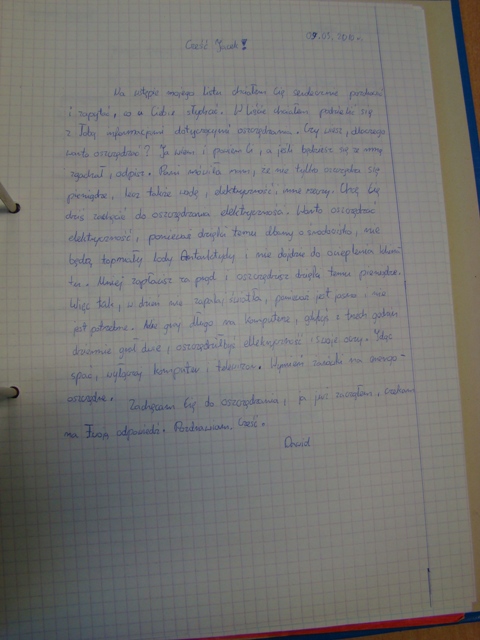 Cześć Jacek!
Na wstępie mojego listu chciałem Cię serdecznie pozdrowić
i zapytać, co u Ciebie słychać. W liście chciałem podzielić się
z Tobą informacjami dotyczącymi oszczędzania. Czy wiesz, dlaczego
warto oszczędzać? Ja wiem i powiem Ci, a jeśli będziesz się ze mną
zgadzał, odpisz. Pani mówiła nam, że nie tylko oszczędza się
pieniądze, lecz także wodę, elektryczność, inne rzeczy. Chcę Cię
dziś zachęcić do oszczędzania elektryczności. Warto oszczędzać
elektryczność, ponieważ dzięki temu dbamy o środowisko, nie
będą topniały lody Antarktydy i nie dojdzie do ocieplenia klima
tu. Mniej zapłacisz za prąd i oszczędzisz dzięki temu pieniądze.
Więc tak, w dzień nie zapalaj światła, ponieważ jest jasno i nie
jest potrzebne. Nie graj długo na komputerze, gdybyś z trzech godzin
dziennie grał dwie, oszczędziłbyś elektryczność i swoje oczy. Idąc
spać, wyłączaj komputer i telewizor. Wymień żarówki na energo-
oszczędne.
Zachęcam Cię do oszczędzania, ja już zacząłem, czekam
na Twoją odpowiedź. Pozdrawiam. Cześć.
Dawid